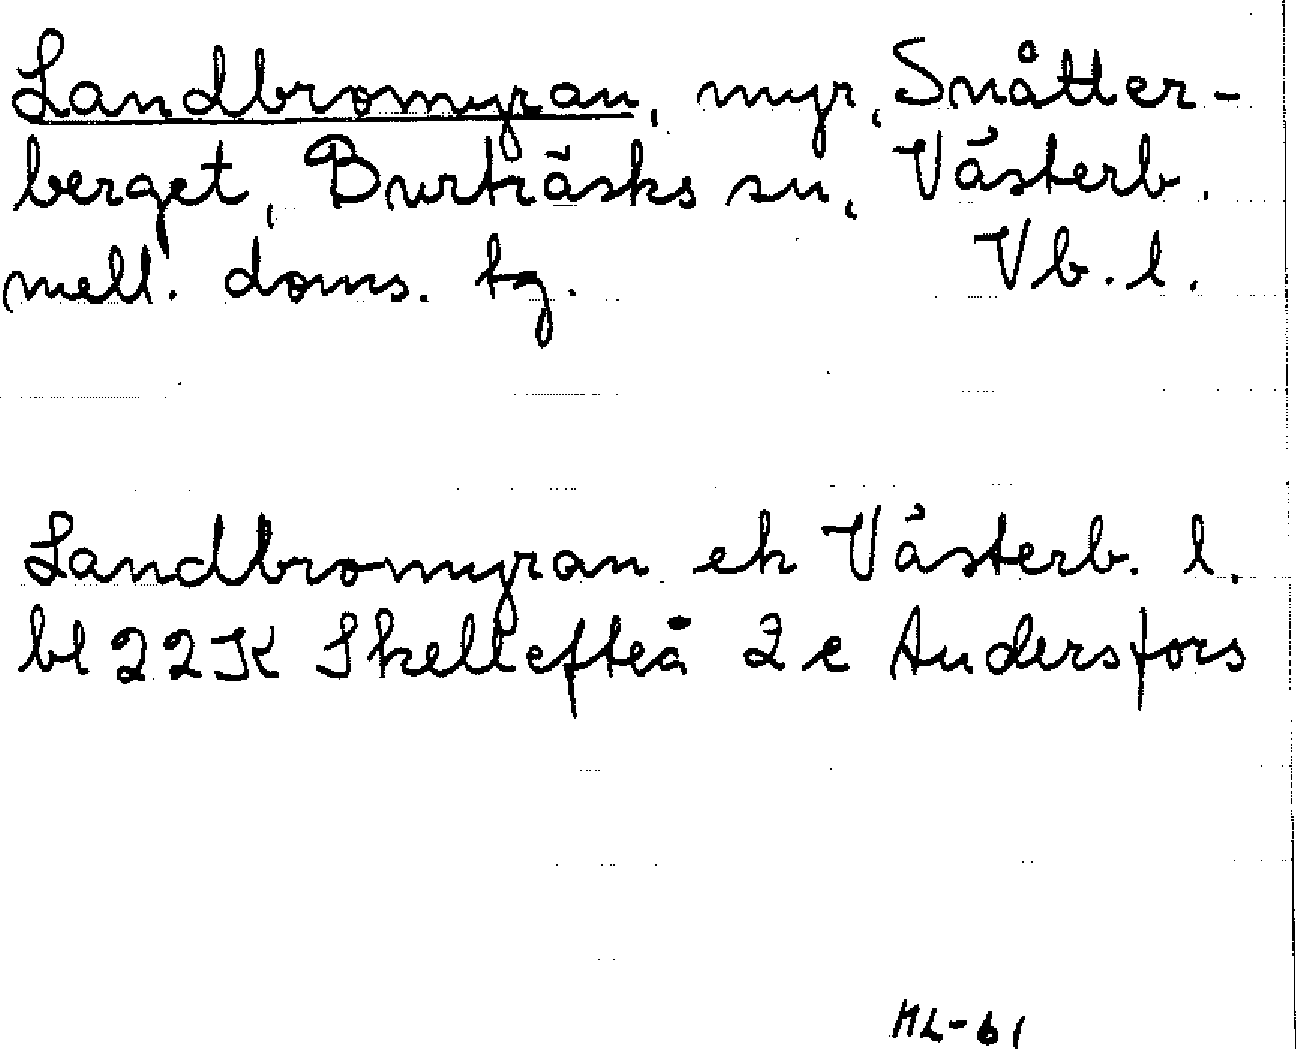 Landbromyran, myr, Snåtter-
berget, Burträsks sn, Västerb.
mell. doms. tg. Vb. l.
Landbromyran ek Västerb. l.
bl 22K Skellefteå 2c Andersfors
ML-61